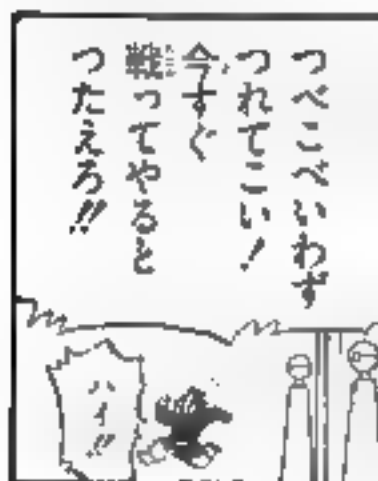 つべこべいわず
つれてこい！
今すぐ
戦ってやると
つたえろ!!
ハイ!!